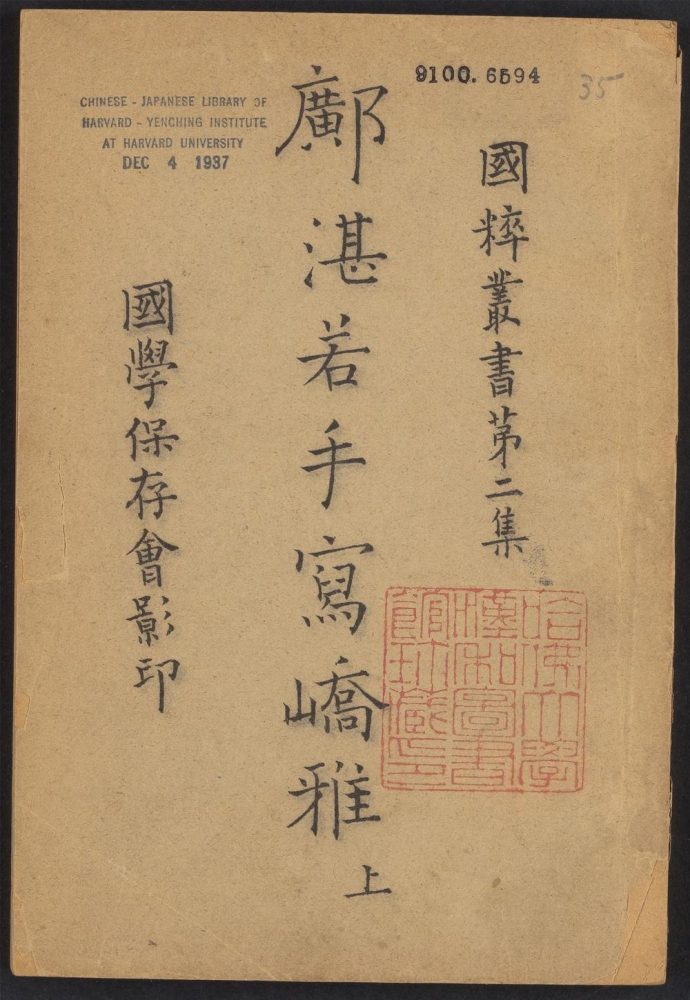 9100.6594
35
CHINESE - JAPANESE LIBRARY OF
HARVARD - YENCHING INSTITUTE
AT HARVARD UNIVERSITY
DEC 4 1937
國粹叢書第二集
鄺湛若手寫嶠雅
上
國學保存會影印
哈佛大學
漢和圖書
館珍藏印